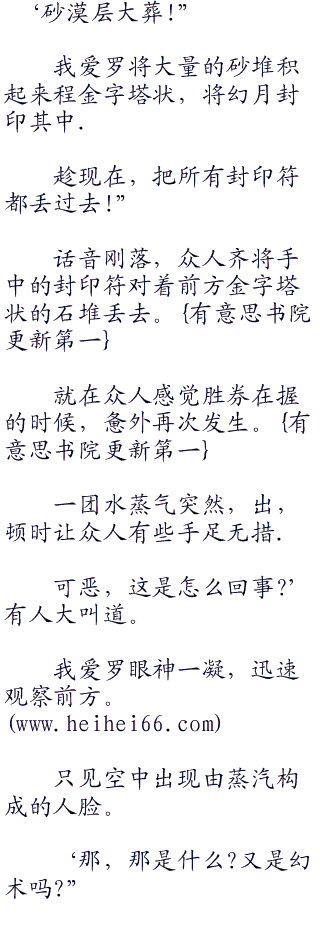 ‘砂漠层大葬!”
我爱罗将大量的砂堆积
起来程金字塔状，将幻月封
印其中.
趁现在，把所有封印符
都丢过去!”
话音刚落，众人齐将手
中的封印符对着前方金字塔
状的石堆丢去。{有意思书院
更新第一}
就在众人感觉胜券在握
的时候，惫外再次发生。{有
意思书院更新第一}
一团水蒸气突然，出，
顿时让众人有些手足无措.
可恶，这是怎么回事?’
有人大叫道。
我爱罗眼神一凝，迅速
观察前方。
(www.heihei66.com)
只见空中出现由蒸汽构
成的人脸。
‘那，那是什么?又是幻
术吗?”